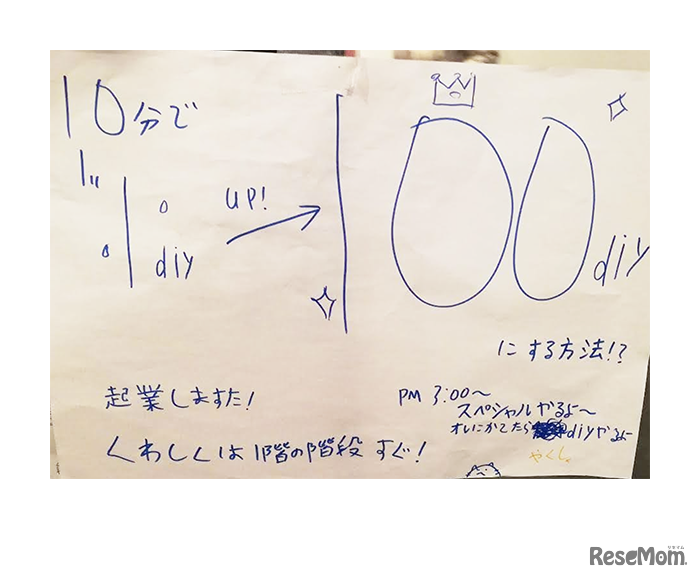 10分で
10 diy
UP!
100 diy
にする方法!?
起業しますた!
くわしくは1階の階段すぐ!
PM 3:00〜
スペシャルやるよ〜
オレにかてたら diyやるよ
やくしゃ
ReseMom.
リセマム